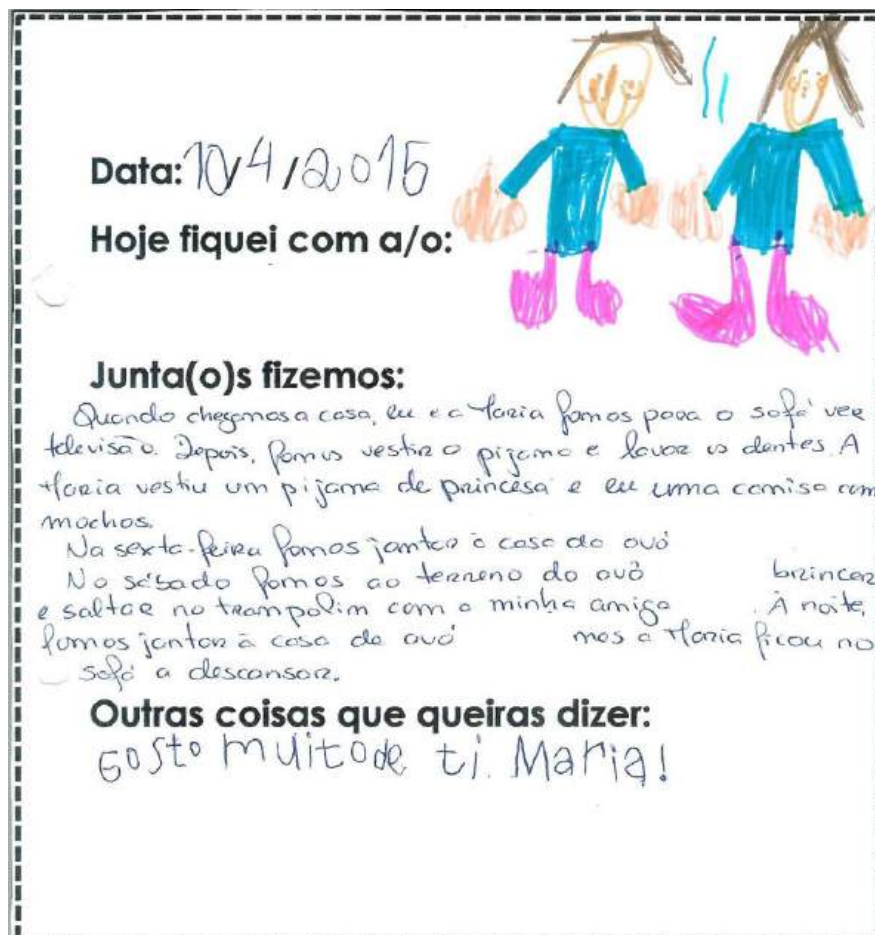 Data: 10/4/2015
Hoje fiquei com a/o:
Junta(o)s fizemos:
Quando chegamos a casa, eu e a Maria fomos para o sofá ver
televisão. Depois, fomos vestir o pijama e lavar os dentes. A
Maria vestiu um pijama de princesa e eu uma camisa com
mochos.
Na sexta-feira fomos jantar à casa da avó
No sábado fomos ao terreno do avô brincar
e saltar no trampolim com a minha amiga . À noite,
fomos jantar à casa da avó mas a Maria ficou no
sofá a descansar.
Outras coisas que queiras dizer:
Gosto muito de ti. Maria!